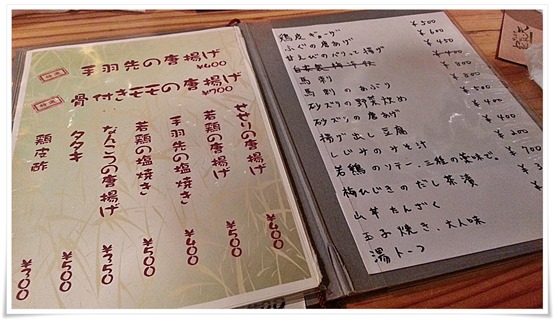 手羽先の唐揚げ ¥600
骨付きモモの唐揚げ ¥700
せせりの唐揚げ ¥400
若鶏の唐揚げ ¥500
手羽先の塩焼き ¥400
若鶏の塩焼き ¥500
なんこつの唐揚げ ¥500
タタキ ¥500
鶏皮酢 ¥300
鶏皮ギョーザ ¥500
ふぐの唐あげ ¥600
甘えびのパリって揚げ ¥450
馬刺 ¥800
馬刺のあぶり ¥800
砂ズリの野菜炒め ¥500
砂ズリの唐あげ ¥400
揚げ出し豆腐 ¥400
しじみのみそ汁 ¥200
若鶏のソテー、三種の薬味で。 ¥700
梅ひじきのだし茶漬
山芋たんざく
玉子焼き、大人味
湯トーフ